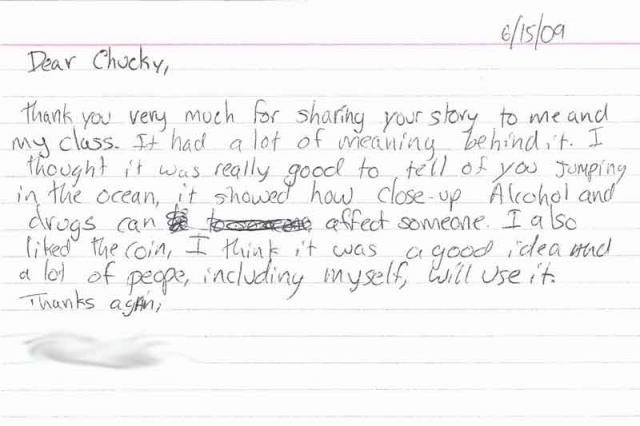 6/15/09
Dear Chucky,
Thank you very much for sharing your story to me and
my class. It had a lot of meaning behind it. I
thought it was really good to tell of you jumping
in the ocean, it showed how close-up Alcohol and
drugs can affect someone. I also
liked the coin, I think it was a good idea and
a lot of peope, including myself, will use it.
Thanks again,